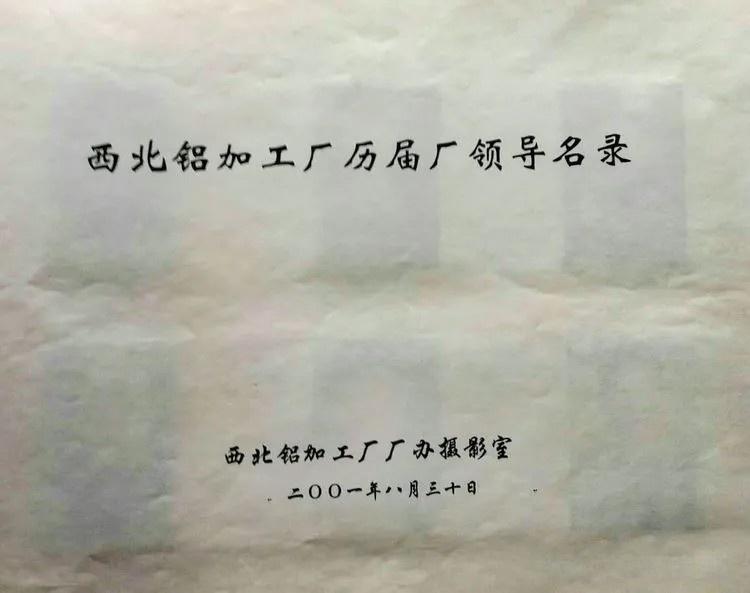 西北铝加工厂历届厂领导名录
西北铝加工厂厂办摄影室
二〇〇一年八月三十日